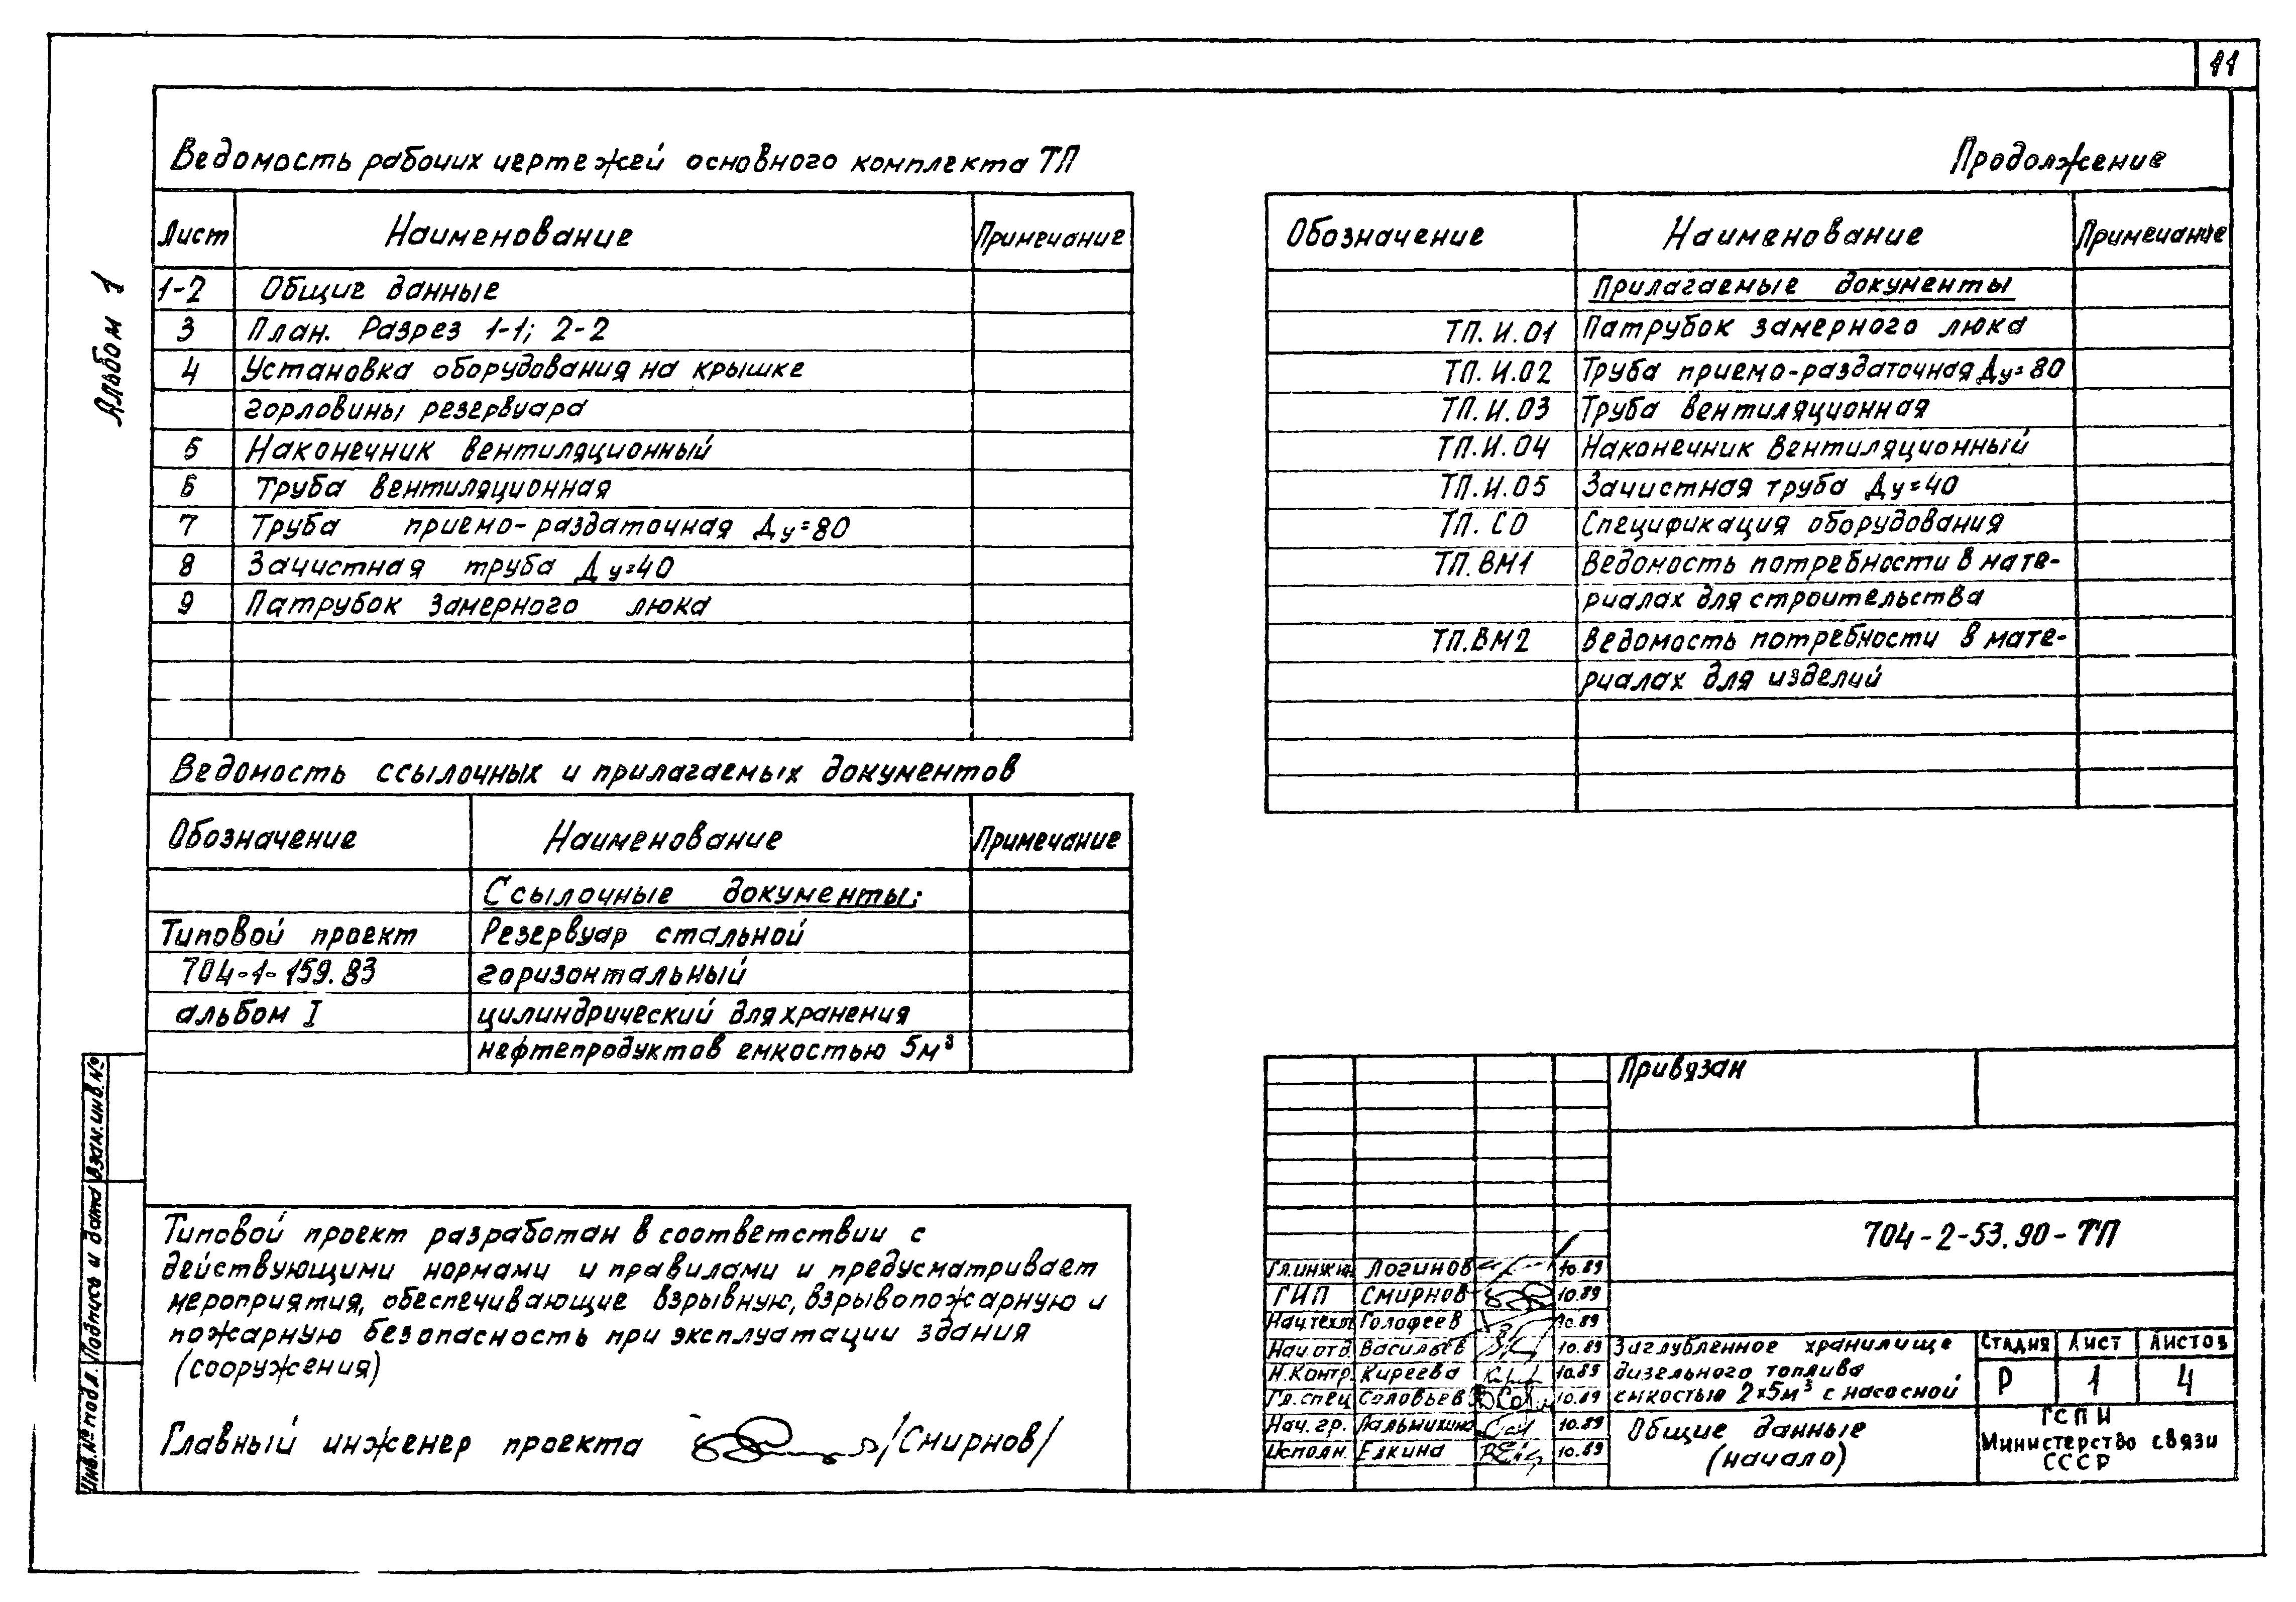 11
Альбом 1
Ведомость рабочих чертежей основного комплекта ТП
Лист Наименование Примечание
1-2 Общие данные
3 План. Разрез 1-1; 2-2
4 Установка оборудования на крышке
горловины резервуара
5 Наконечник вентиляционный
6 Труба вентиляционная
7 Труба приемо-раздаточная Ду=80
8 Зачистная труба Ду=40
9 Патрубок замерного люка
Ведомость ссылочных и прилагаемых документов
Обозначение Наименование Примечание
Ссылочные документы:
Типовой проект Резервуар стальной
704-1-159.83 горизонтальный
альбом I цилиндрический для хранения
нефтепродуктов емкостью 5м³
Типовой проект разработан в соответствии с
действующими нормами и правилами и предусматривает
мероприятия, обеспечивающие взрывную, взрывопожарную и
пожарную безопасность при эксплуатации здания
(сооружения)
Главный инженер проекта /Смирнов/
Продолжение
Обозначение Наименование Примечание
Прилагаемые документы
ТП.И.01 Патрубок замерного люка
ТП.И.02 Труба приемо-раздаточная Ду=80
ТП.И.03 Труба вентиляционная
ТП.И.04 Наконечник вентиляционный
ТП.И.05 Зачистная труба Ду=40
ТП.СО Спецификация оборудования
ТП.ВМ1 Ведомость потребности в мате-
риалах для строительства
ТП.ВМ2 Ведомость потребности в мате-
риалах для изделий
Привязан
704-2-53.90-ТП
Гл.инж.ин. Логинов 10.89
ГИП Смирнов 10.89
Нач.техн. Голофеев 10.89
Нач.отд. Васильев 10.89
Н.Контр. Киреева 10.89
Гл.спец. Соловьев 10.89
Нач.гр. Пальмихина 10.89
Исполн. Елкина 10.89
Заглубленное хранилище
дизельного топлива
емкостью 2х5м³ с насосной
Стадия Лист Листов
Р 1 4
Общие данные
(начало)
ГСПИ
Министерство связи
СССР
Взам.инв.№
Подпись и дата
Инв.№ подл.